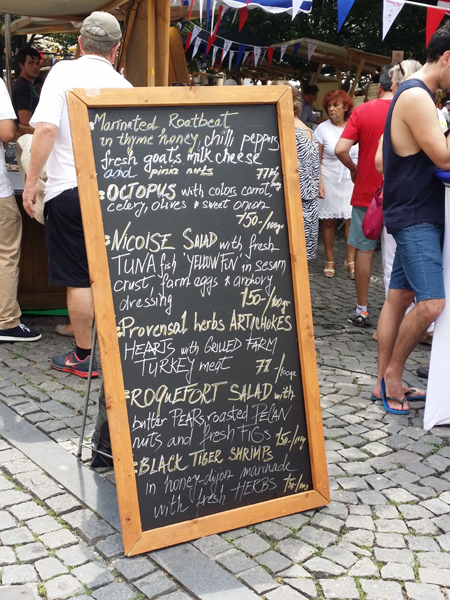 Marinated Roatbeat
in thyme honey, chilli peppers
fresh goats milk cheese
and pinia nuts
OCTOPUS with colors carrot,
celery, olives & sweet onion
150.-/100gr
NICOISE SALAD with fresh
TUNA fish 'YELLOW FIN' in sesam
crust, farm aggs & anchovy
dressing 150-/100gr
Provensal herbs ARTICHOKES
HEARTS with GRILLED FARM
TURKEY meat 77.-/100gr
ROQUEFORT SALAD with
butter PEARS, roasted PECAN
nuts and fresh FIGS 150-/100gr
BLACK TIGER SHRIMPS
in honey-dijon marinade
with fresh HERBS